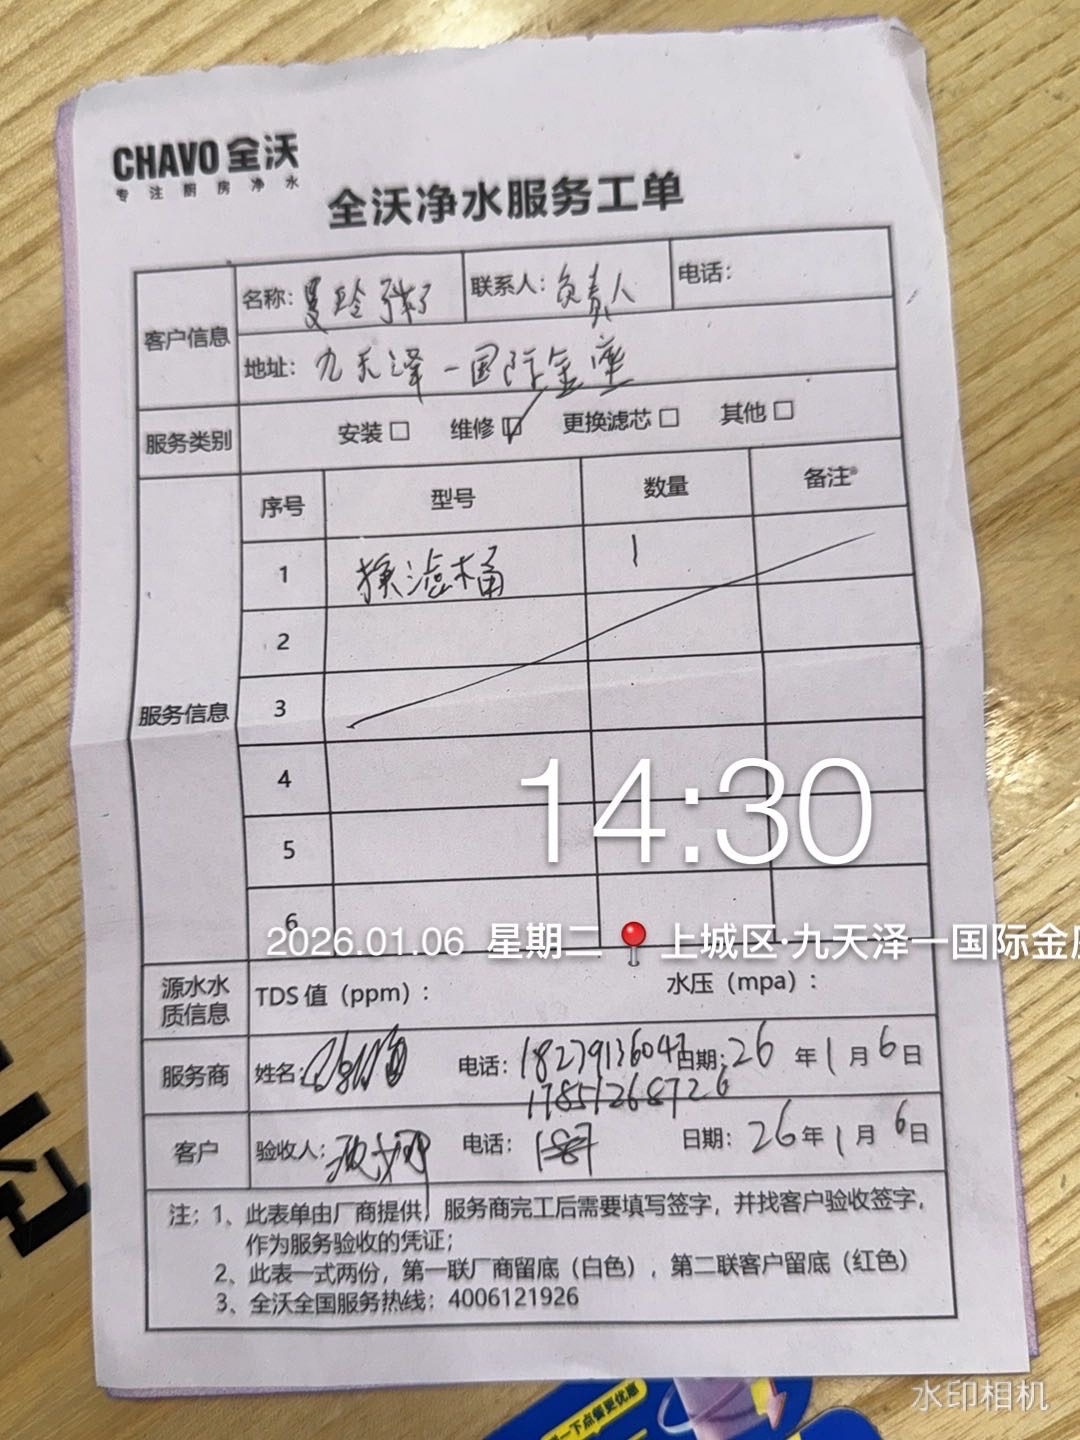 CHAVO 全沃
专注厨房净水
全沃净水服务工单
客户信息
名称: 曼玲粥 联系人: 负责人 电话:
地址: 九天泽一国际金座
服务类别 安装□ 维修☑ 更换滤芯□ 其他□
服务信息
序号 型号 数量 备注
1 换滤桶 1
2
3
4
5
6
14:30
2026.01.06 星期二 上城区·九天泽一国际金
源水水质信息 TDS 值（ppm）: 水压（mpa）:
服务商 姓名: 电话: 18279136047 日期: 26年1月6日
17851268726
客户 验收人: 电话: 187 日期: 26年1月6日
注: 1、此表单由厂商提供，服务商完工后需要填写签字，并找客户验收签字，
作为服务验收的凭证；
2、此表一式两份，第一联厂商留底（白色），第二联客户留底（红色）
3、全沃全国服务热线: 4006121926
一下点餐更优惠
水印相机